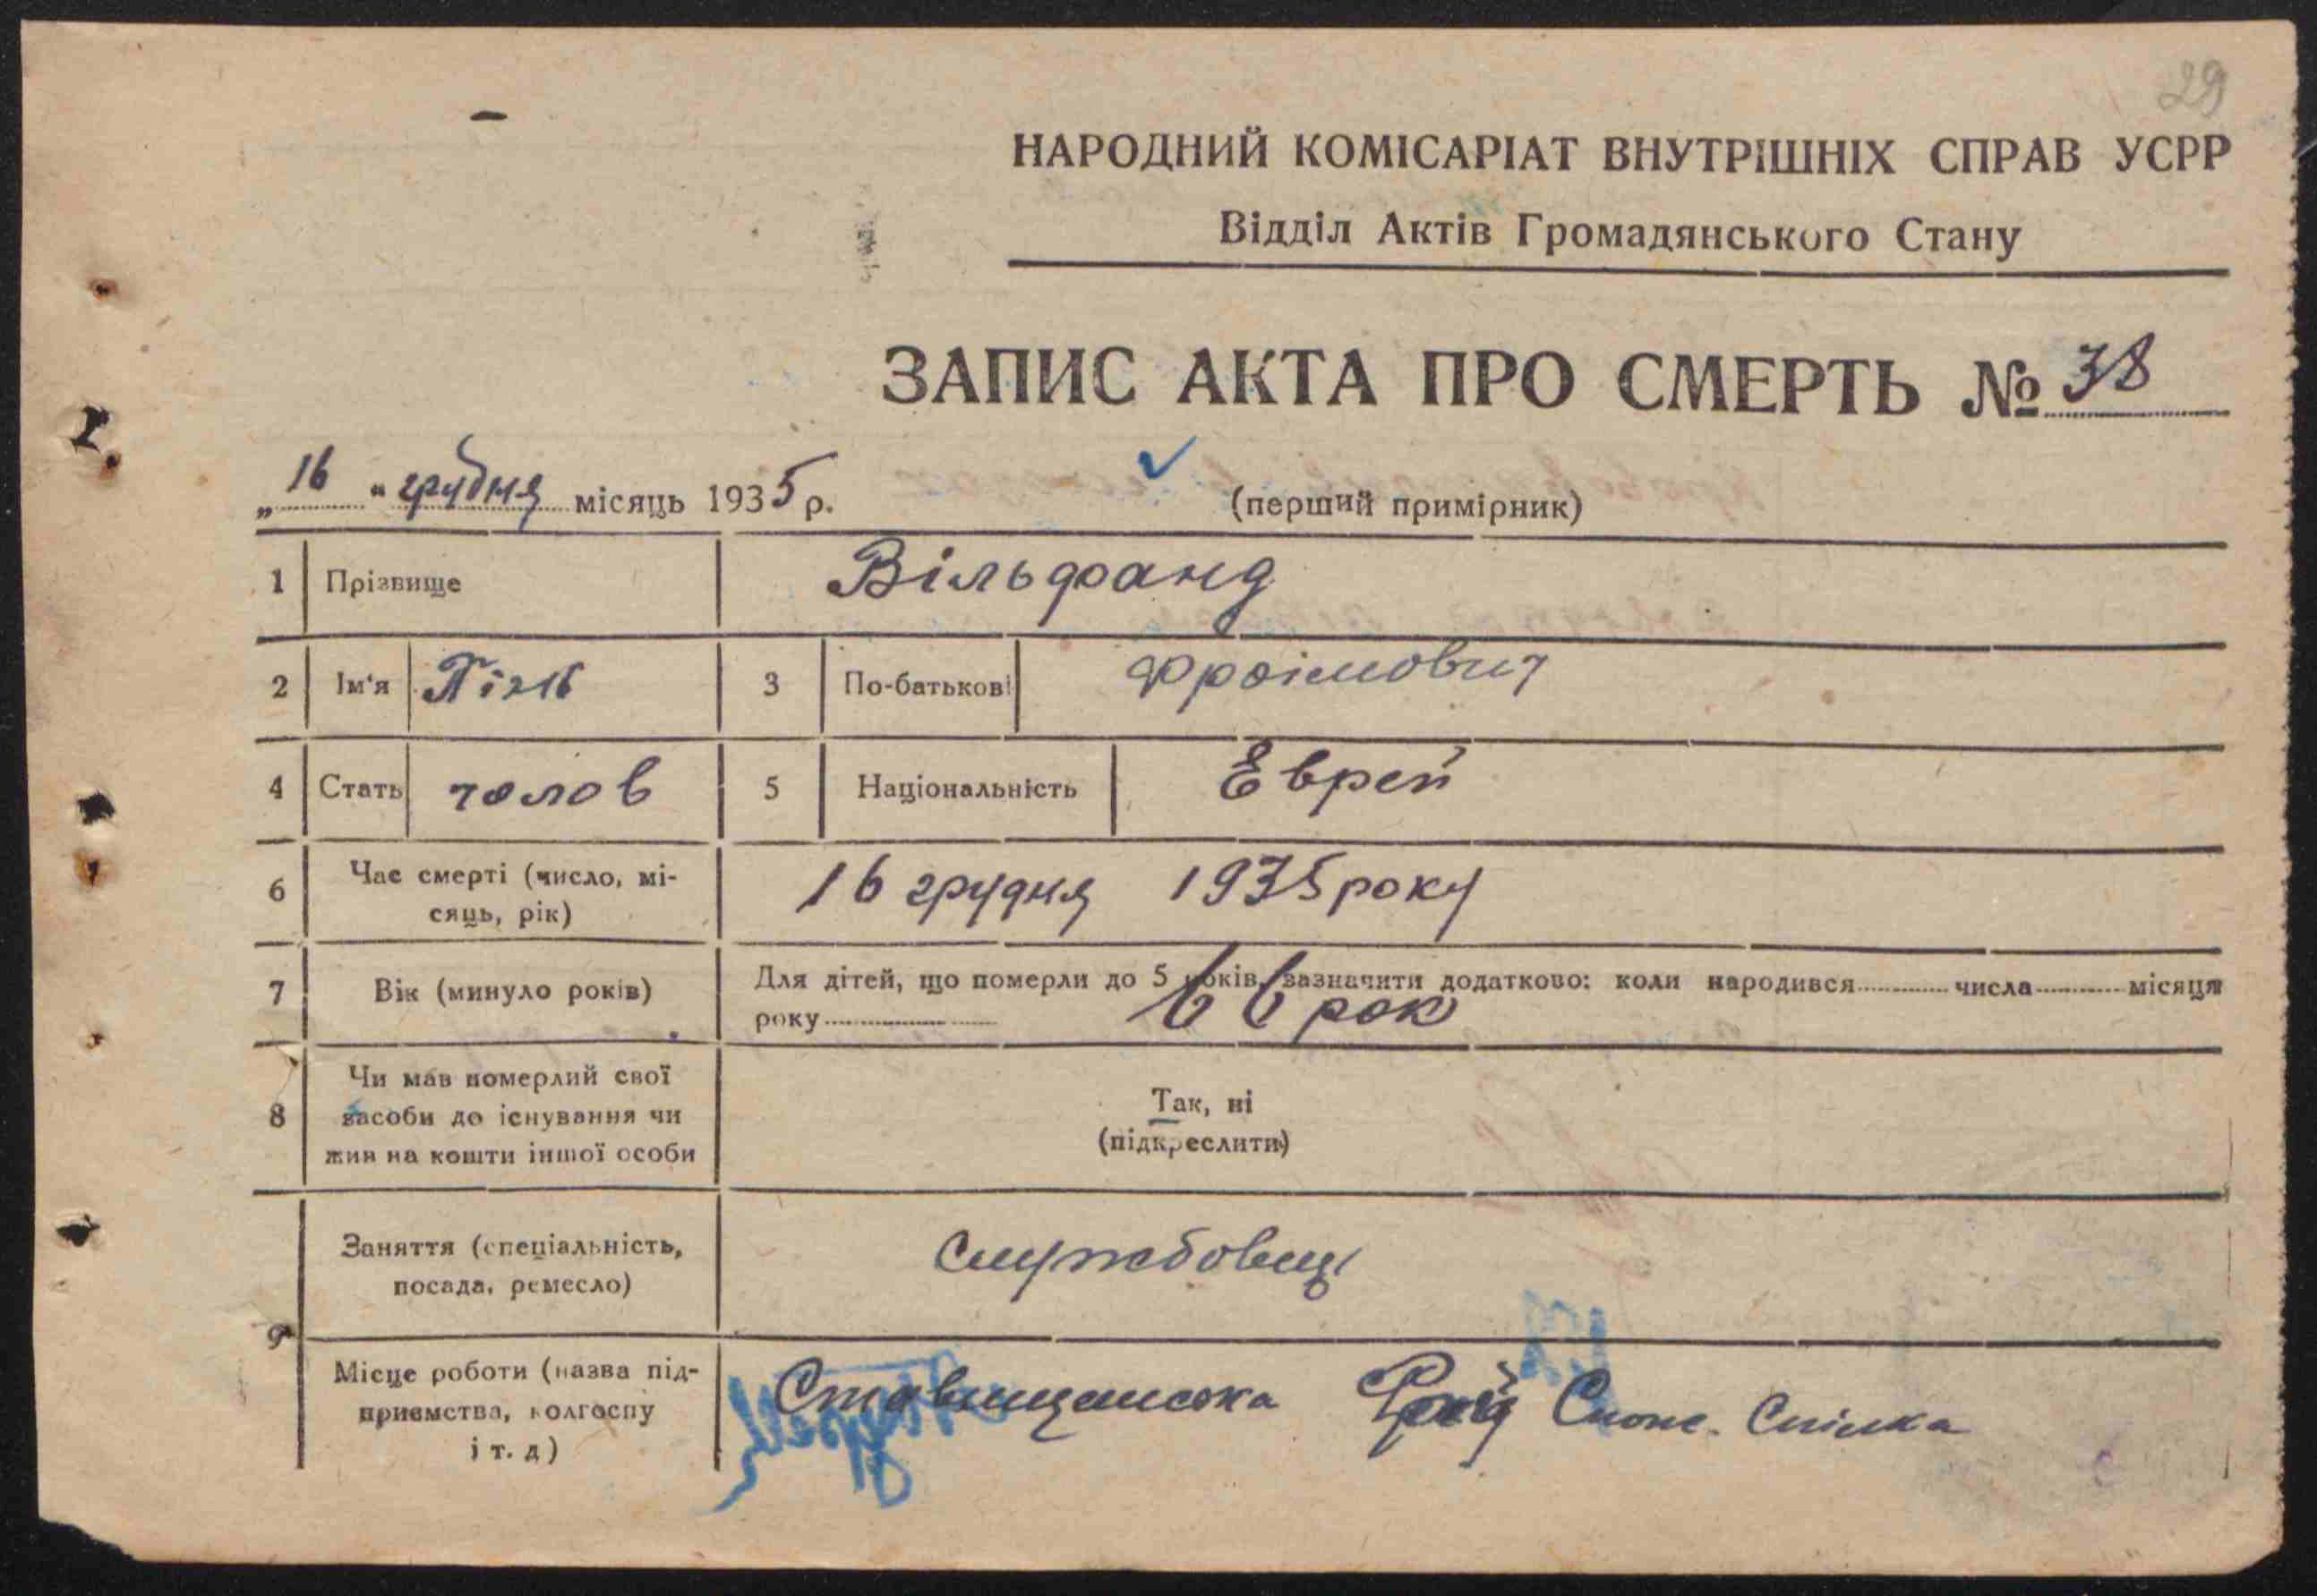 29
НАРОДНИЙ КОМІСАРІАТ ВНУТРІШНІХ СПРАВ УСРР
Відділ Актів Громадянського Стану
ЗАПИС АКТА ПРО СМЕРТЬ № 38
„16“ грудня місяць 1935 р.
(перший примірник)
1 Прізвище Вільфанд
2 Ім'я 3 По-батькові Фроімович
4 Стать чолов 5 Національність Еврей
6 Час смерті (число, мі-
сяць, рік) 16 грудня 1935 року
7 Вік (минуло років) Для дітей, що померли до 5 років, зазначити додатково: коли народився числа місяця
року 66 рок
8 Чи мав померлий свої
засоби до існування чи
жив на кошти іншої особи
Так, ні
(підкреслити)
9 Заняття (спеціальність,
посада, ремесло) Службовець
Місце роботи (назва під-
приємства, колгоспу
і т. д) Ставищанська Спож. Спілка